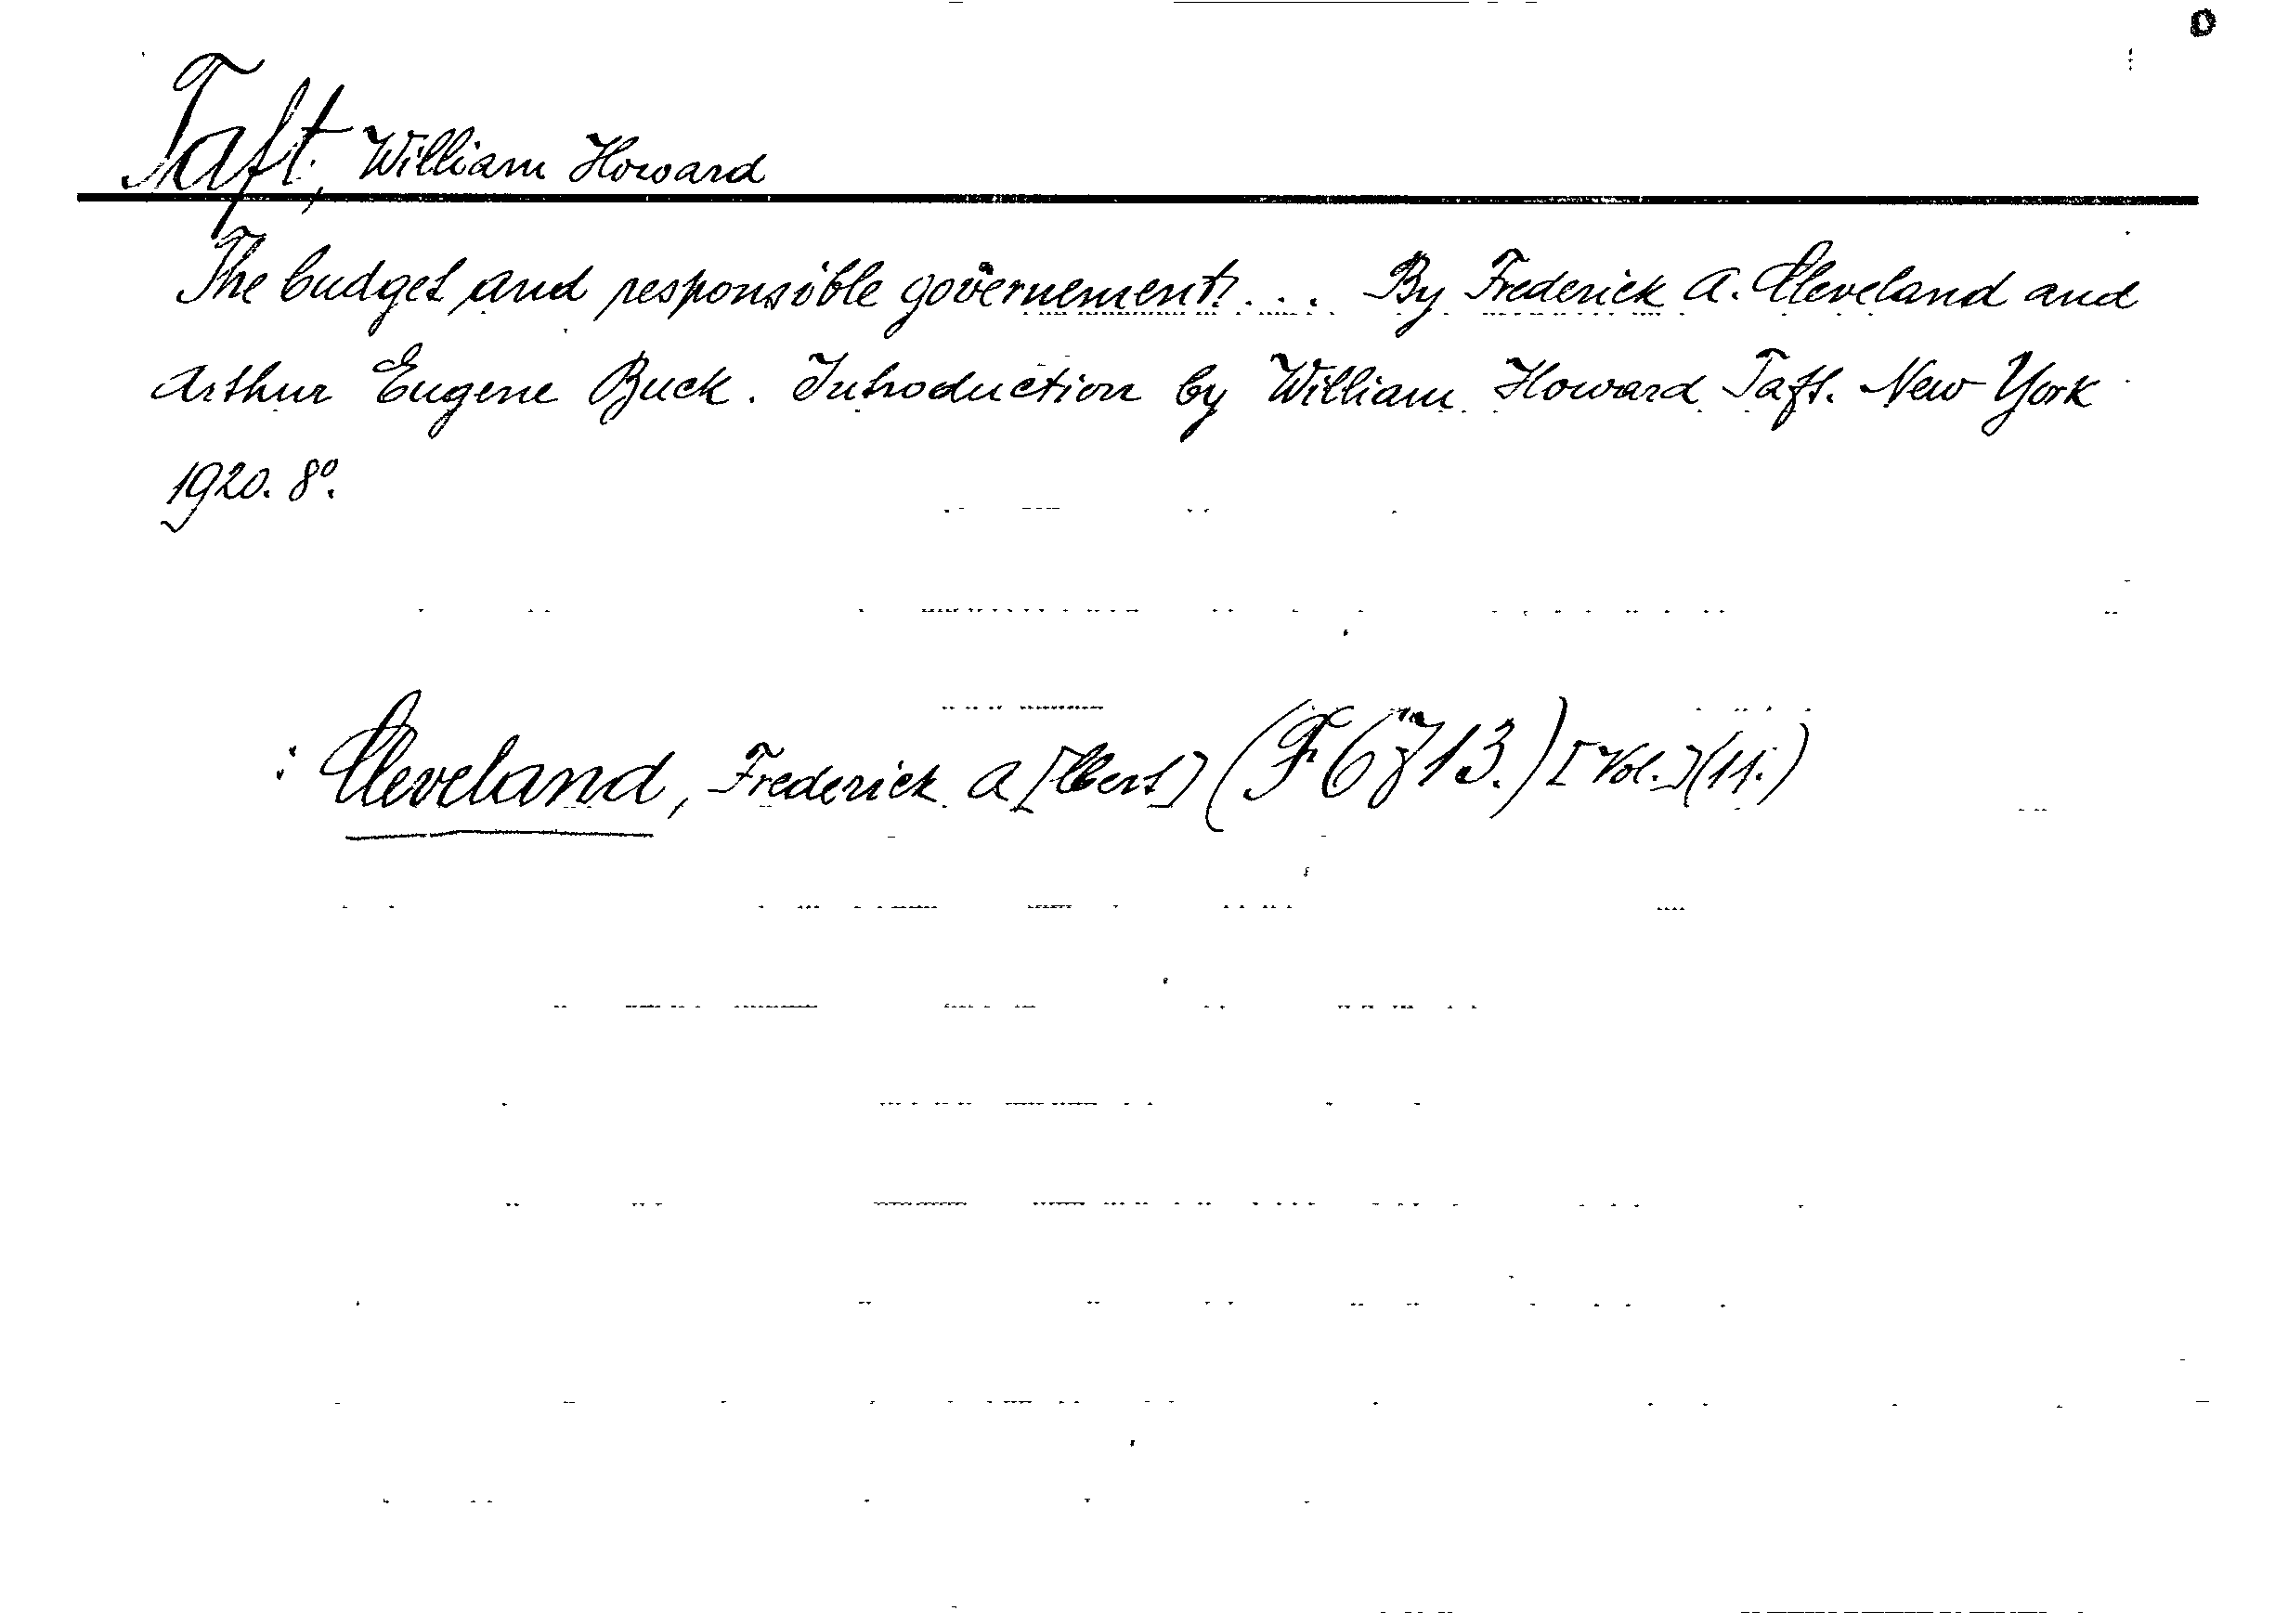 Taft, William Howard
The budget and responsible governement... By Frederick A. Cleveland and
Arthur Eugene Buck. Introduction by William Howard Taft. New York
1920. 8°.
: Cleveland, Frederick A[lbert] (F6713.) [Vol.](11.)